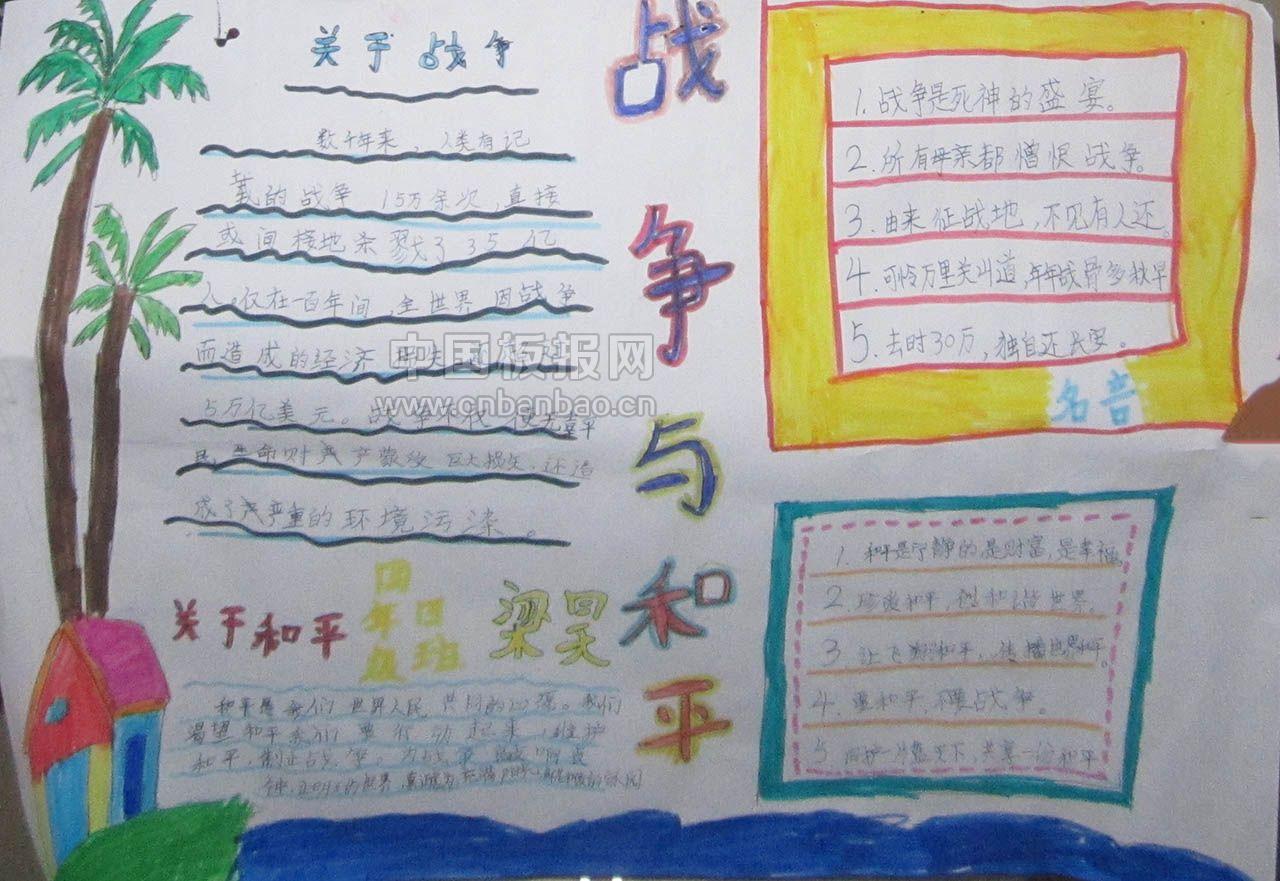 战争与和平
关于战争
数千年来，人类有记
载的战争15万余次，直接
或间接地杀戮了35亿
人。仅在一百年间，全世界因战争
而造成的经济
5万亿美元。战争不仅使无辜平
民生命财产蒙受巨大损失，还造
成了严重的环境污染。
1.战争是死神的盛宴。
2.所有母亲都憎恨战争。
3.由来征战地，不见有人还。
4.可怜万里关山道，年年战骨多秋早
5.去时30万，独自还长安。
名言
中国板报网
www.cnbanbao.cn
关于和平
四年级
四班
梁昊
和平是我们世界人民共同的心愿。我们
渴望和平我们要行动起来，维护
和平，制止战争。
1.和平是宁静的，是财富，是幸福
2.珍爱和平，创和谐世界。
3.让飞翔和平，传播世界和平。
4.要和平，不要战争。
5.同护一片蓝天下，共享一份和平